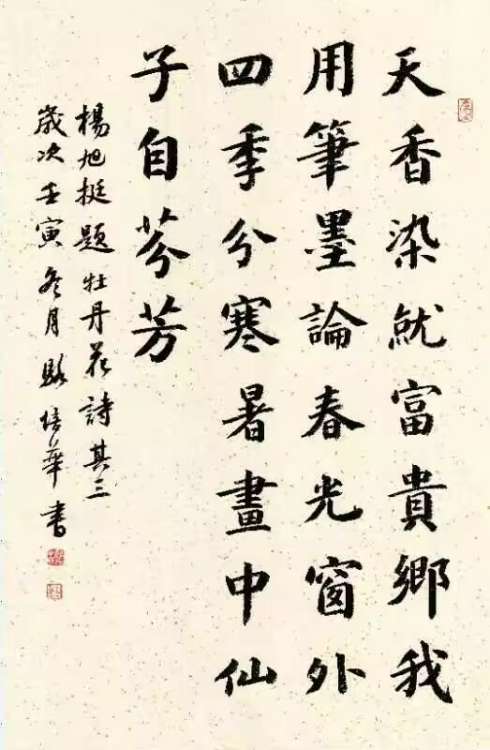 天香染就富貴鄉我
用筆墨論春光窗外
四季分寒暑畫中仙
子自芬芳
楊旭挺題牡丹花詩其三
歲次壬寅冬月 倍華書